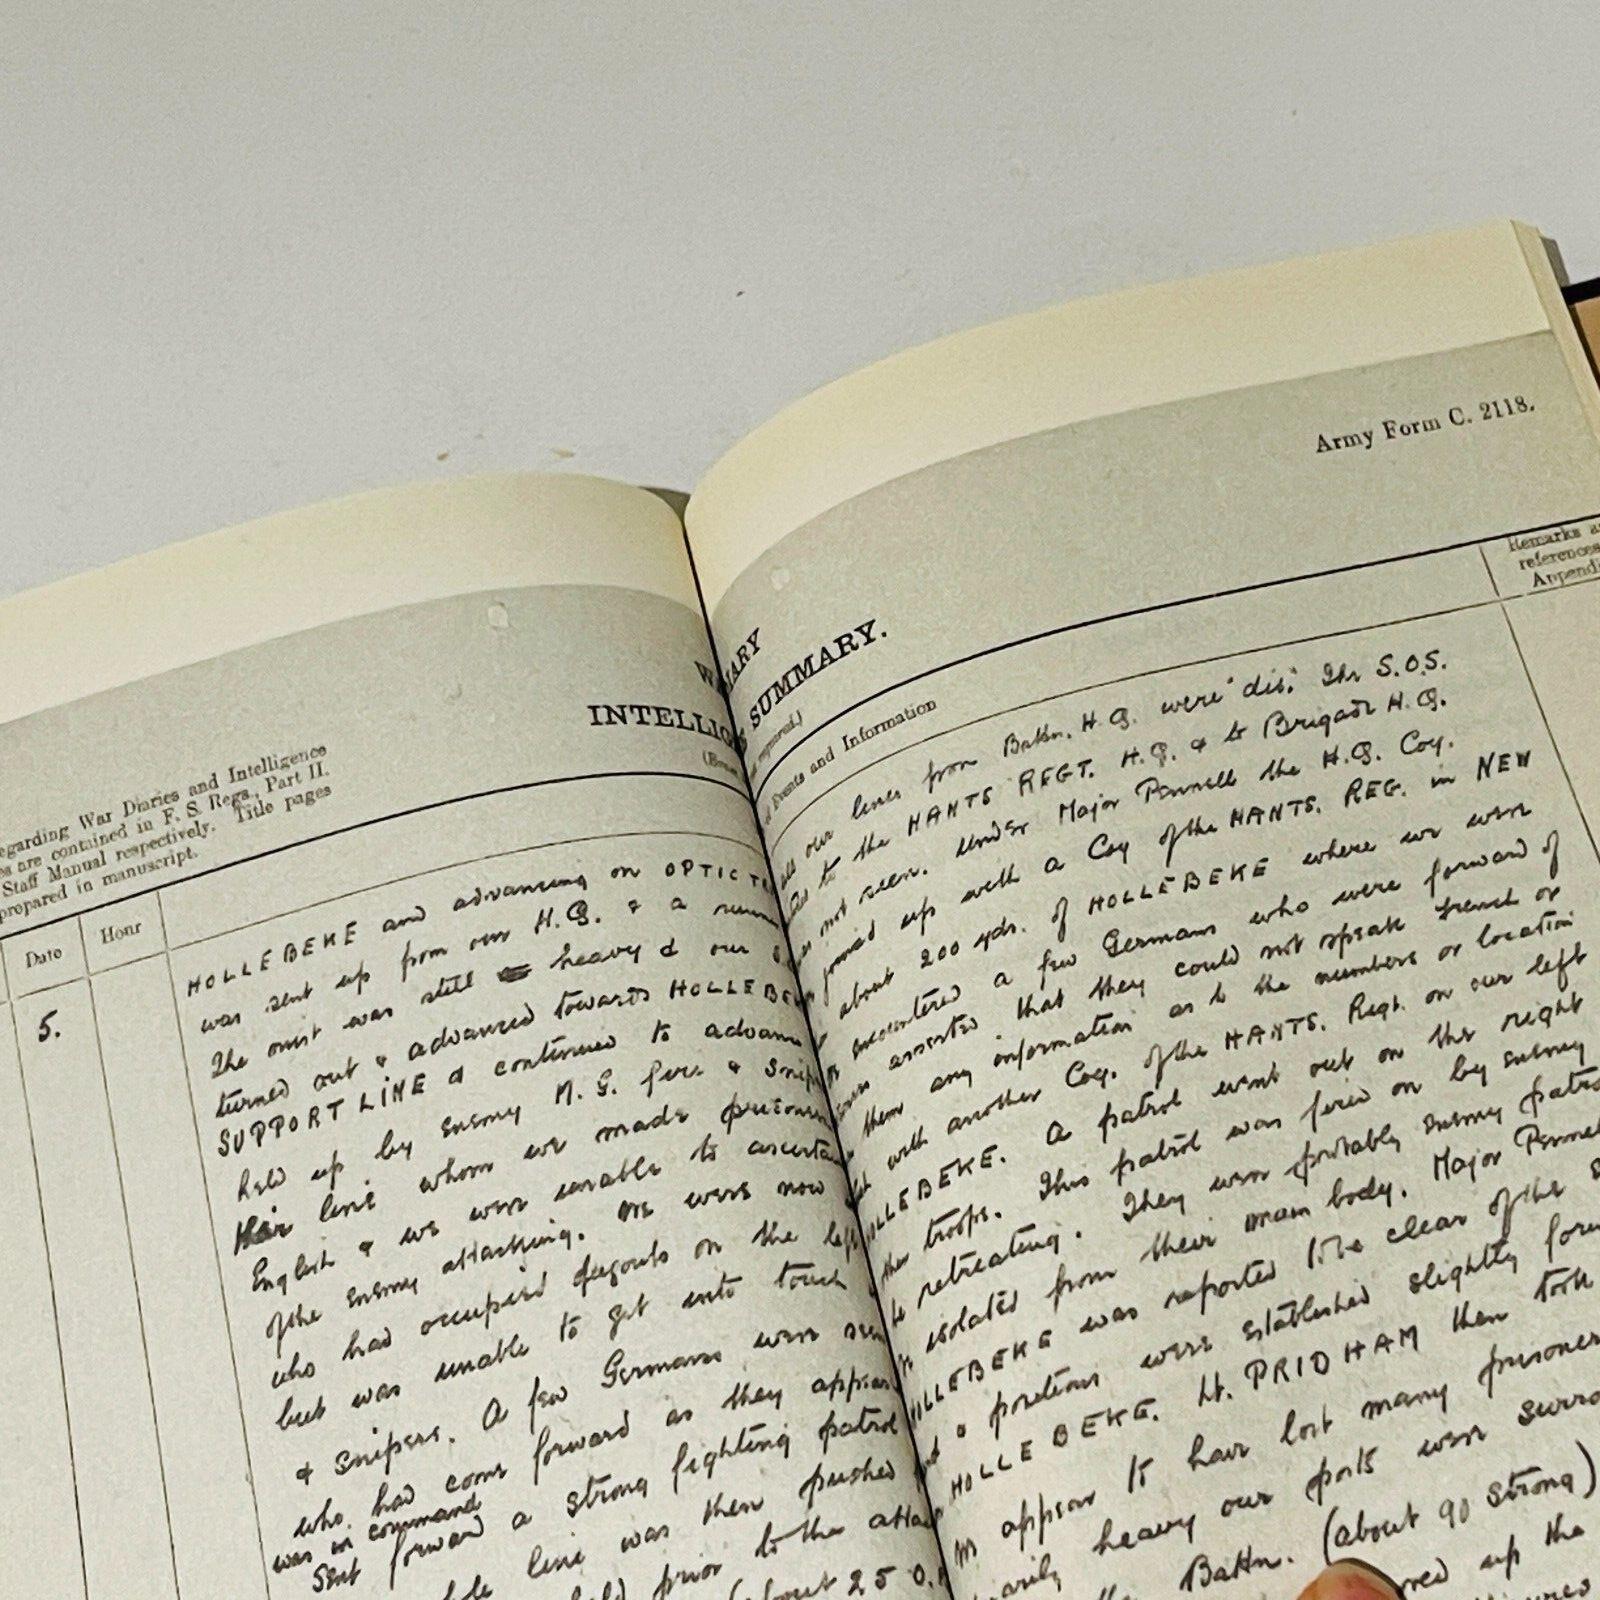 Army Form C. 2118.
WAR DIARY
INTELLIGENCE SUMMARY.
regarding War Diaries and Intelligence
are contained in F. S. Regs., Part II.
Staff Manual respectively. Title pages
prepared in manuscript.
Date
Hour
Events and Information
Remarks
references
5.
HOLLEBEKE and advancing on OPTIC
was sent up from our H.Q. & a
The mist was still heavy & our
turned out & advanced towards HOLLEBEKE
SUPPORT LINE & continued to
held up by enemy M.G. fire &
their line whom we made
English & we were unable to
of the enemy attacking. We were now
who had occupied dugouts on the left
but was unable to get into touch
& snipers. A few Germans were
who had come forward as they
was in command
sent forward a strong fighting patrol
line was then pushed
prior to the
about 250
our lines from Battn. H.Q. were dis. The S.O.S.
to the HANTS REGT. H.Q. & to Brigade H.Q.
not seen. Under Major Pennell the H.Q. Coy.
up with a Coy of the HANTS. REG. in NEW
about 200 yds. of HOLLEBEKE where we were
encountered a few Germans who were forward of
asserted that they could not speak French or
them any information as to the numbers or location
with another Coy. of the HANTS. Regt. on our left
HOLLEBEKE. A patrol went out on the right
troops. This patrol was fired on by enemy
retreating. They were probably enemy
isolated from their main body. Major
HOLLEBEKE was reported to be clear of the
positions were established slightly
HOLLEBEKE. Lt. PRIDHAM then took
appear to have lost many
heavy our posts were
Battn. (about 90 strong)
up the